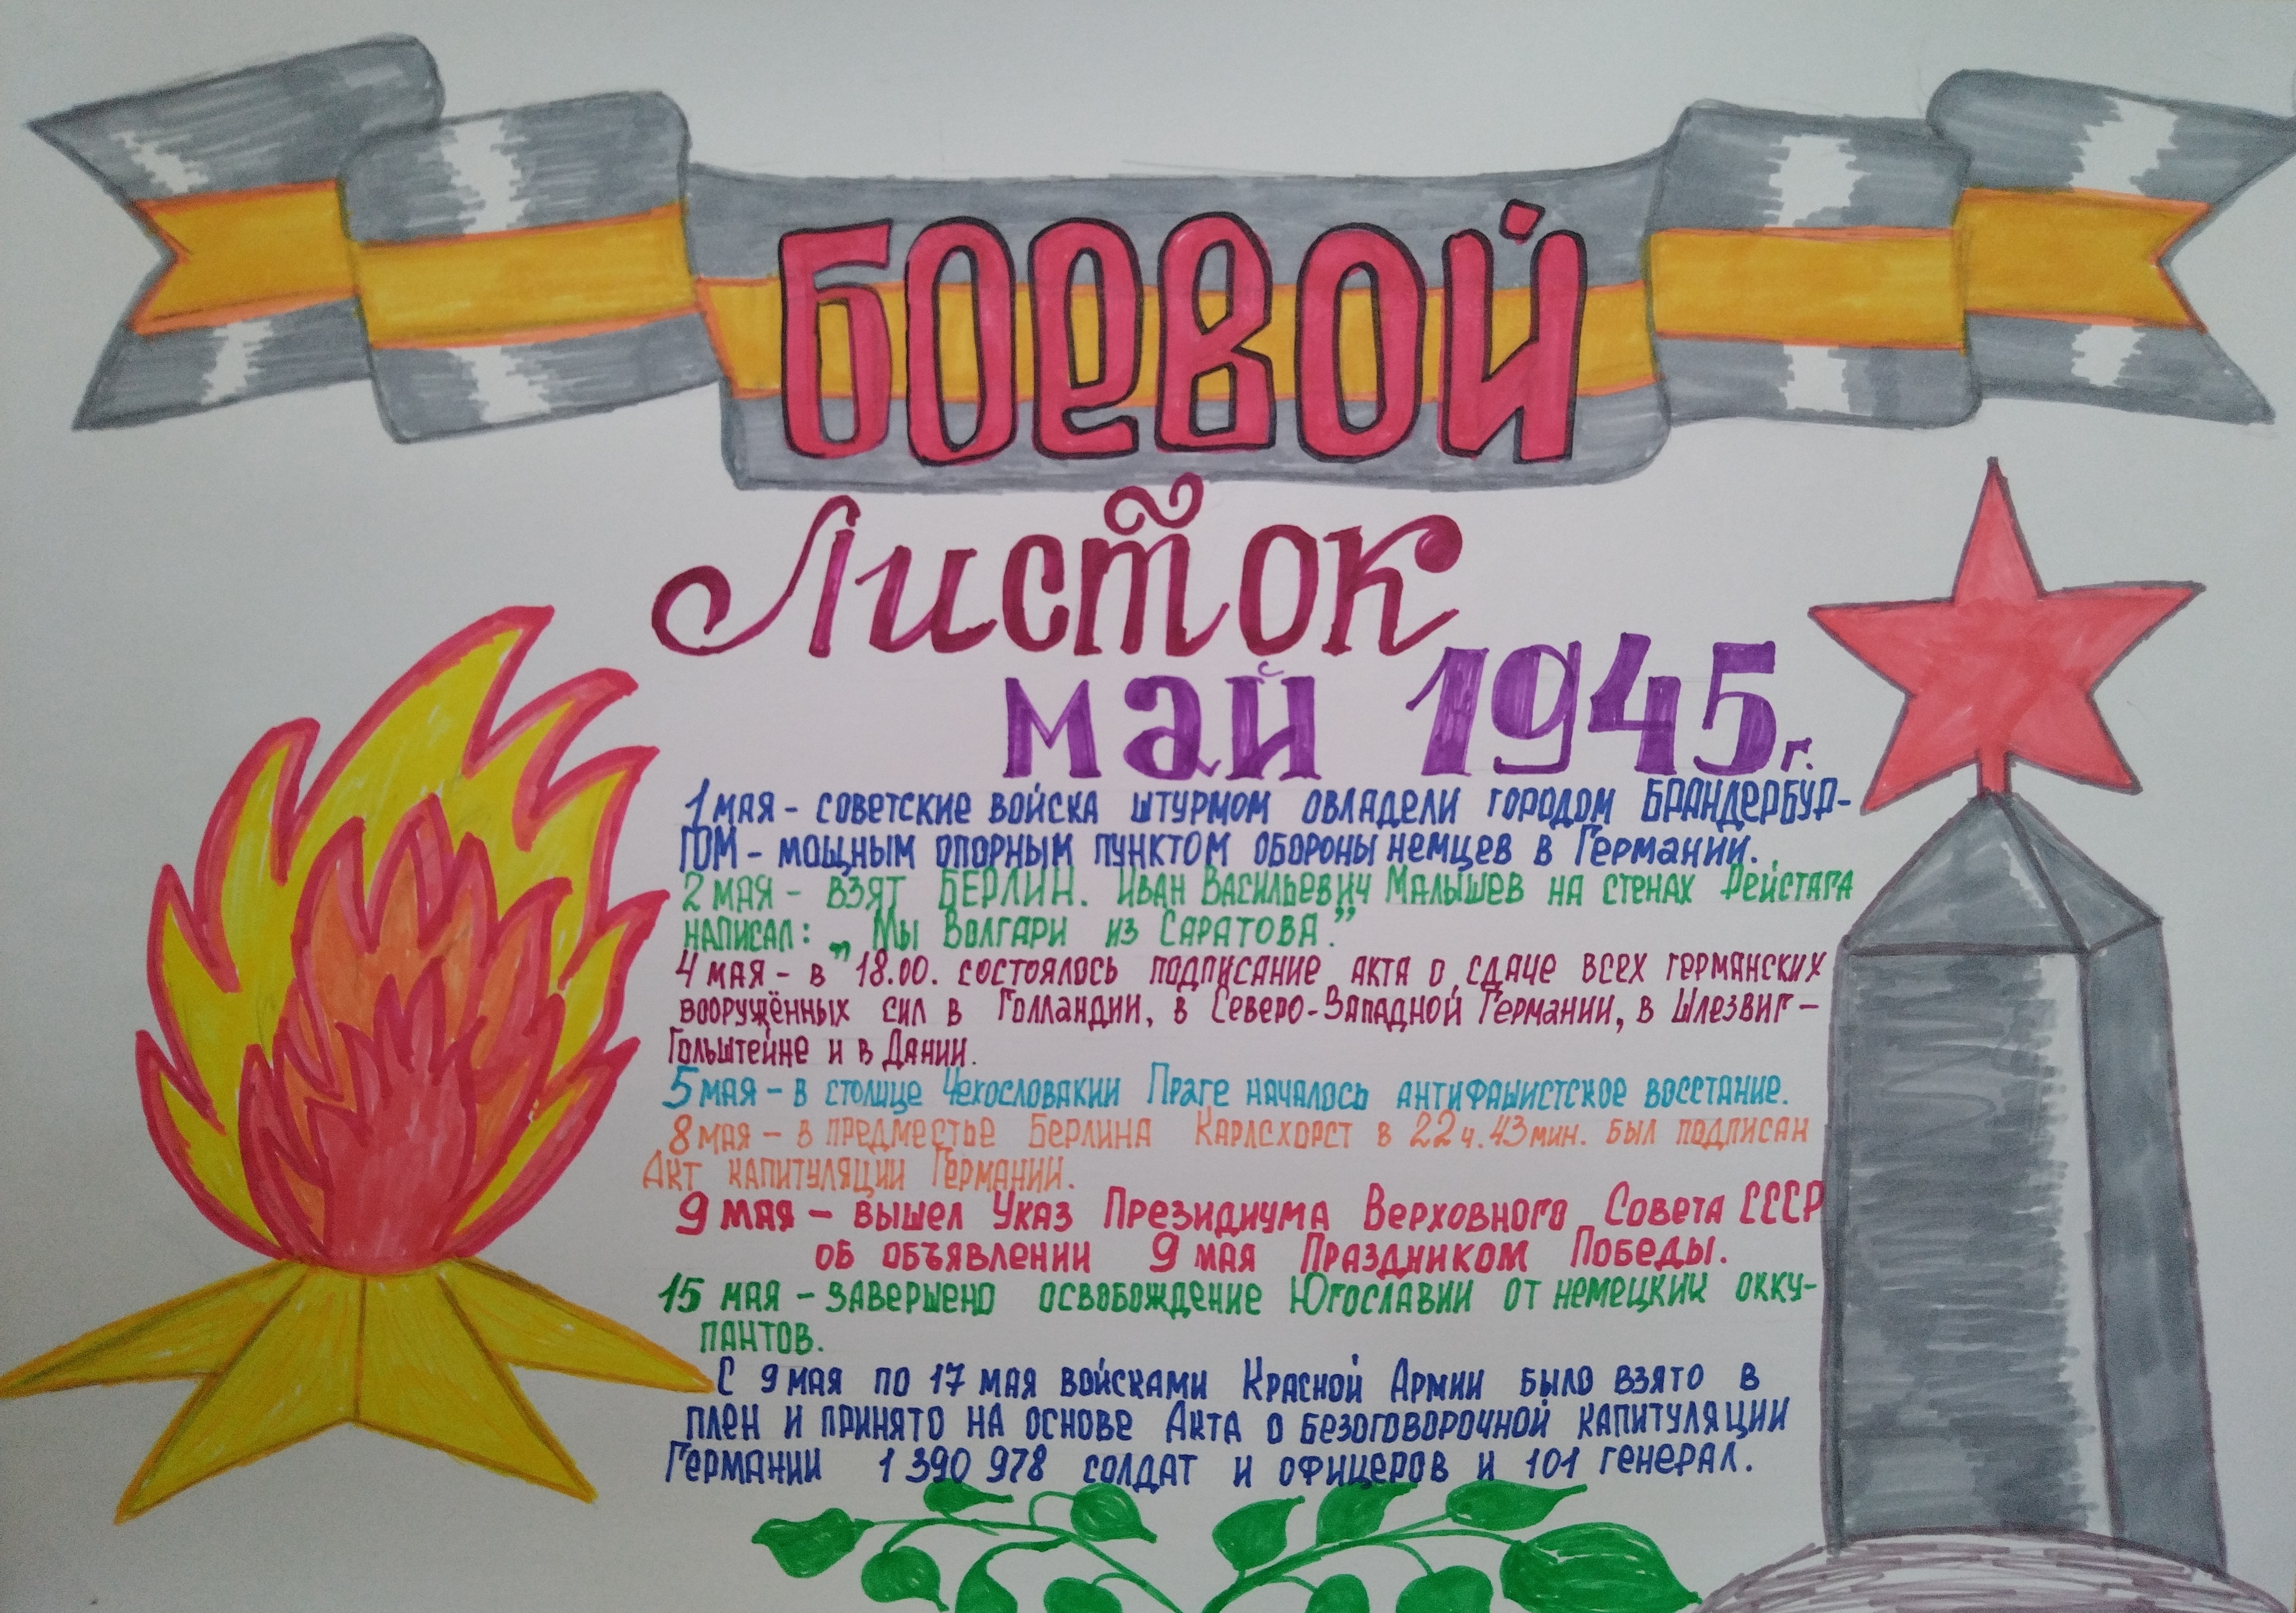 БОЕВОЙ
Листок
май 1945 г.
1 мая - советские войска штурмом овладели городом Брандербур-
гом - мощным опорным пунктом обороны немцев в Германии.
2 мая - взят БЕРЛИН. Иван Васильевич Малышев на стенах Рейстага
написал: „Мы Волгари из Саратова.”
4 мая - в 18.00. состоялось подписание акта о сдаче всех германских
вооружённых сил в Голландии, в Северо-Западной Германии, в Шлезвиг-
Гольштейне и в Дании.
5 мая - в столице Чехословакии Праге началось антифашистское восстание.
8 мая - в предместье Берлина Карлсхорст в 22 ч. 43 мин. был подписан
Акт капитуляции Германии.
9 мая - вышел Указ Президиума Верховного Совета СССР
об объявлении 9 мая Праздником Победы.
15 мая - завершено освобождение Югославии от немецких окку-
пантов.
С 9 мая по 17 мая войсками Красной Армии было взято в
плен и принято на основе Акта о безоговорочной капитуляции
Германии 1 390 978 солдат и офицеров и 101 генерал.